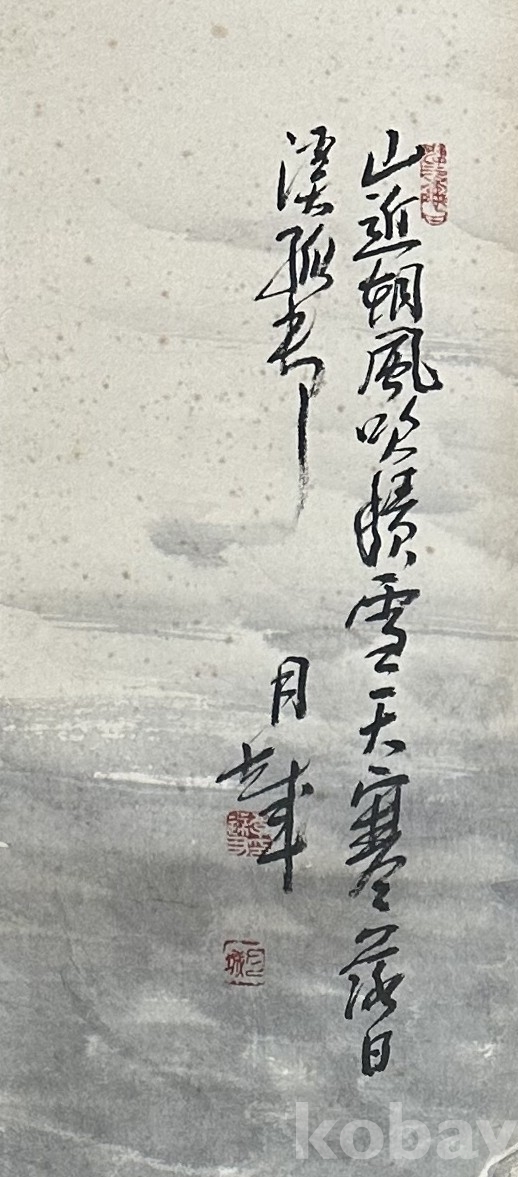 山近朔風吹積雪天寒落日
淡孤邨
月城
kobay